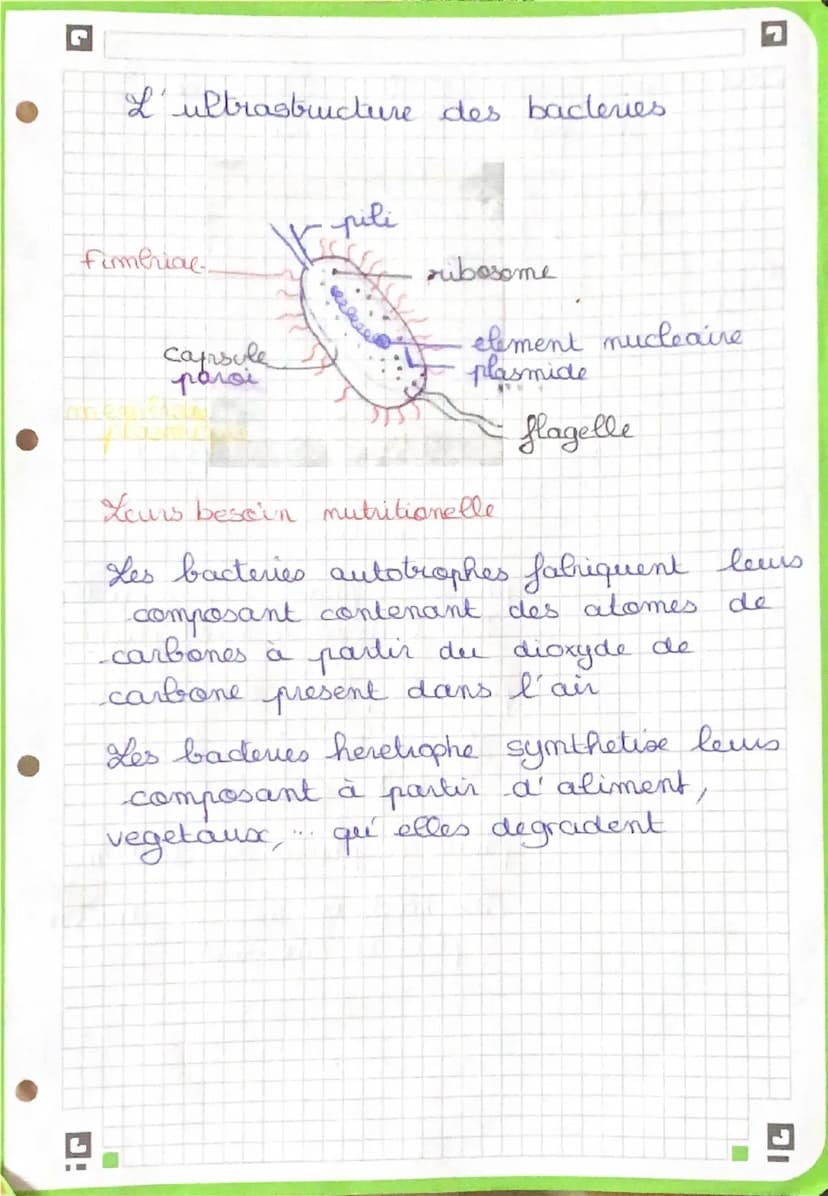 L'ultrastructure des bacteries
pili
fimbriae
ribosome
element nucleaire
capsule
plasmide
paroi
plasmique
flagelle
Leurs besoin nutritionelle
Les bacteries autotrophes fabriquent leurs
composant contenant des atomes de
carbones à partir du dioxyde de
carbone present dans l'air
Les bacteries heretrophe synthetise leurs
composant à partir d'aliment,
vegetaux, ... qu'elles degradent